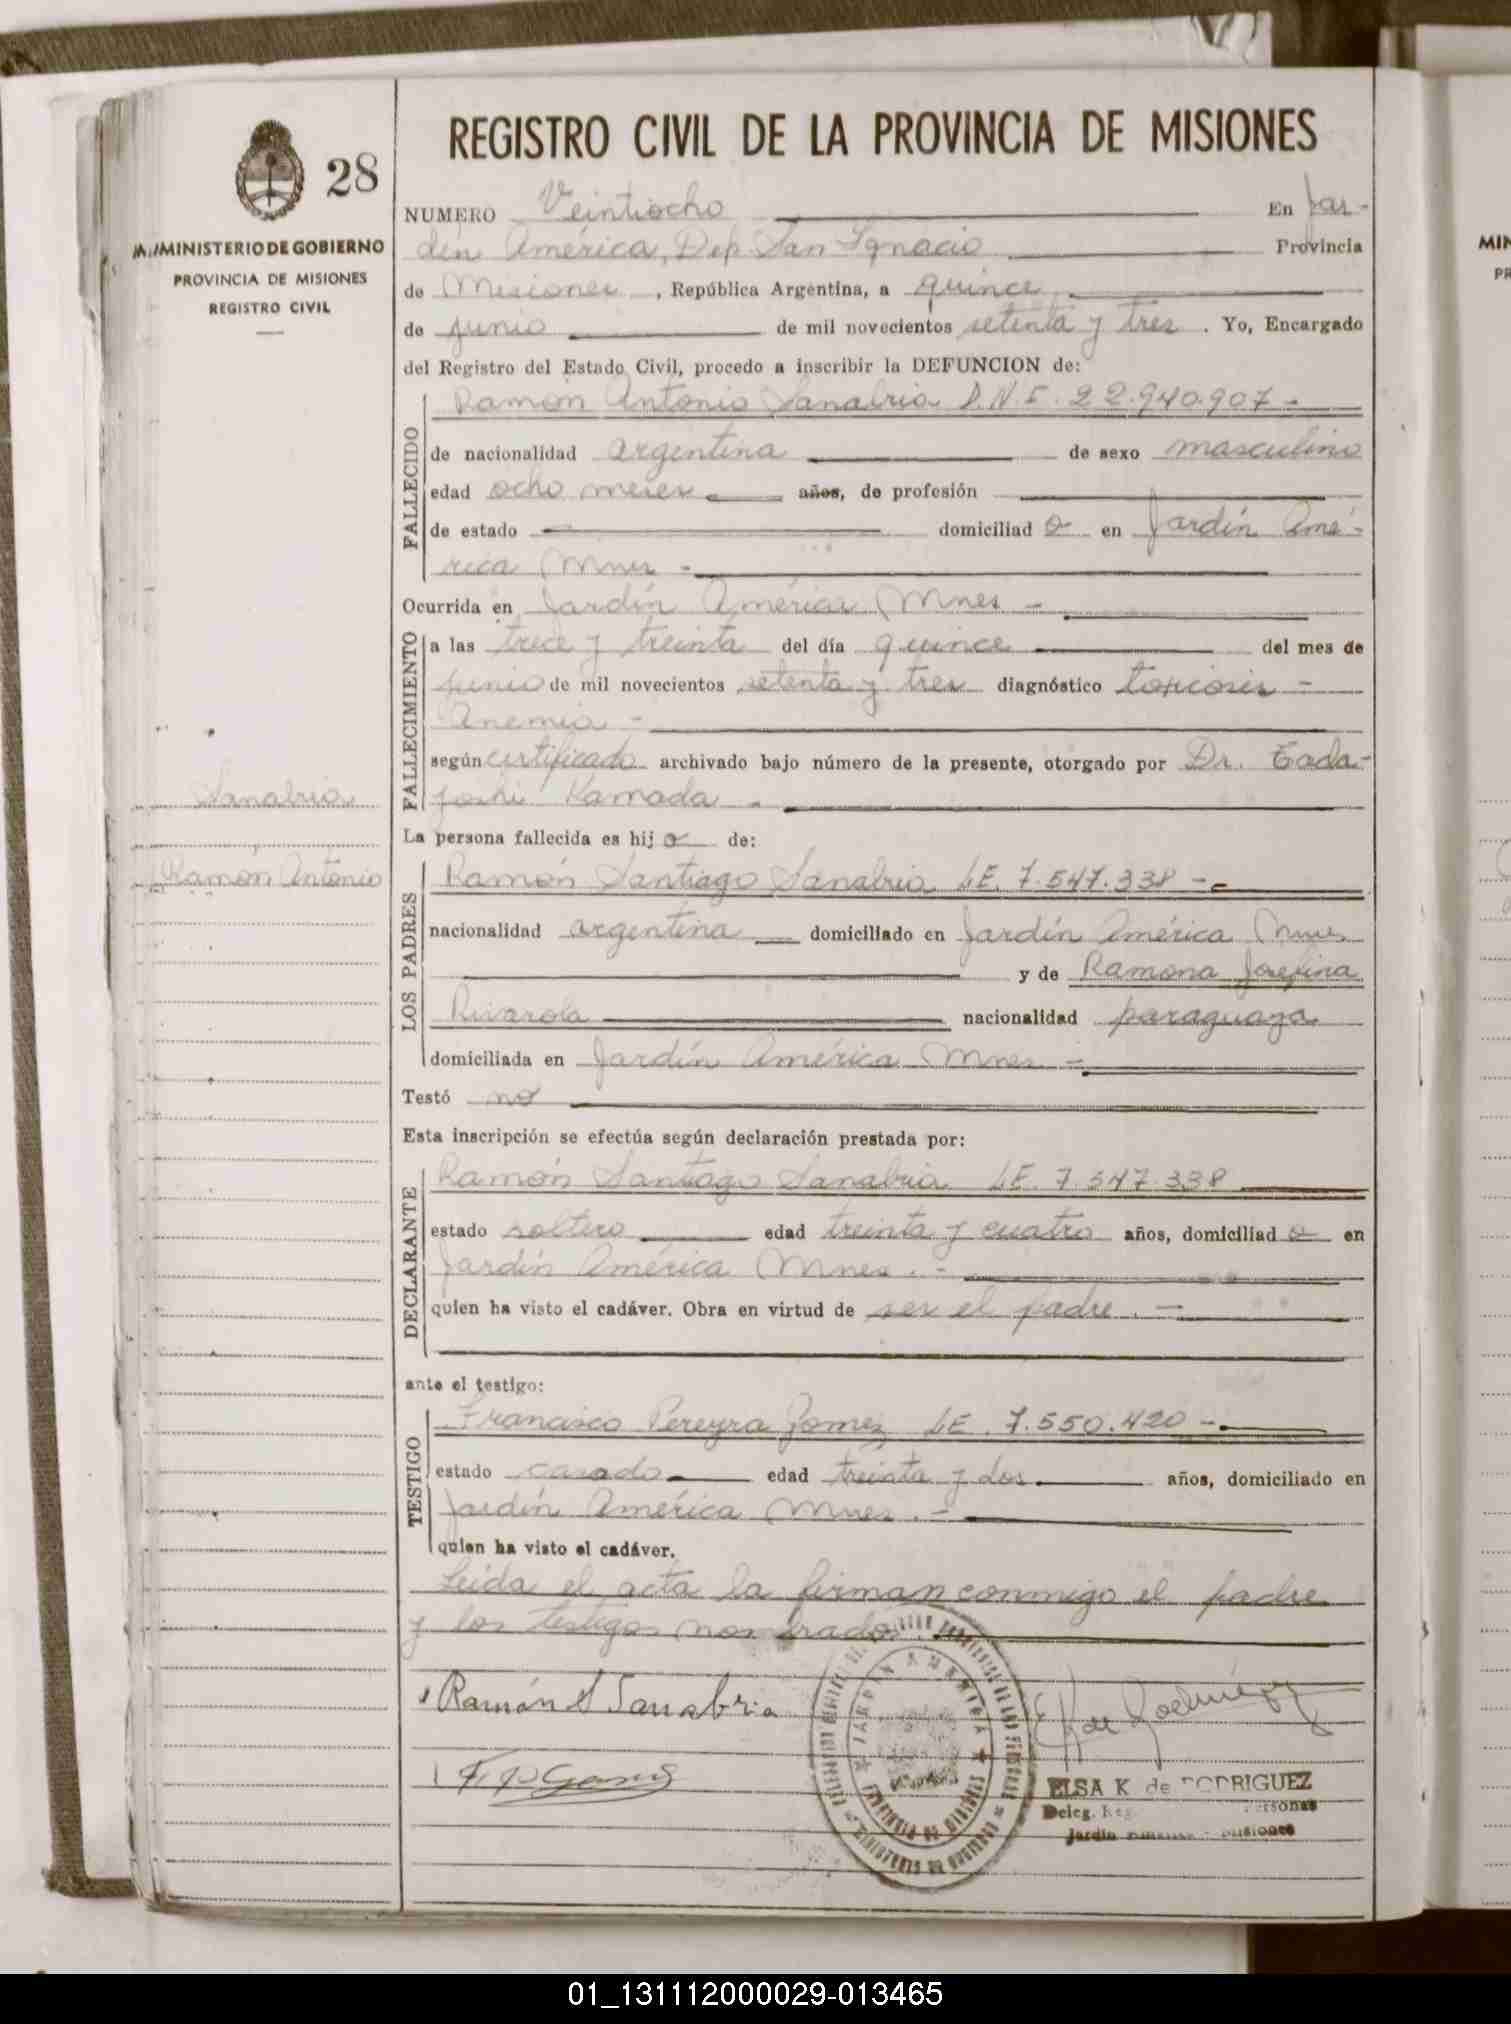 REGISTRO CIVIL DE LA PROVINCIA DE MISIONES
28
M./MINISTERIO DE GOBIERNO
PROVINCIA DE MISIONES
REGISTRO CIVIL
NUMERO Veintiocho En Jar-
dín América, Dep San Ignacio Provincia
de Misiones, República Argentina, a quince
de junio de mil novecientos setenta y tres. Yo, Encargado
del Registro del Estado Civil, procedo a inscribir la DEFUNCION de:
FALLECIDO
Ramón Antonio Sanabria D.N.I. 22.940.907-
de nacionalidad argentina de sexo masculino
edad ocho meses años, de profesión
de estado domiciliado en Jardín Amé-
rica Mnes -
Ocurrida en Jardín América Mnes -
FALLECIMIENTO
a las trece y treinta del día quince del mes de
junio de mil novecientos setenta y tres diagnóstico toxicosis -
Anemia -
según certificado archivado bajo número de la presente, otorgado por Dr. Tada-
joshi Kamada -
Sanabria
Ramón Antonio
La persona fallecida es hijo de:
LOS PADRES
Ramón Santiago Sanabria LE. 7.547.338 -
nacionalidad argentina domiciliado en Jardín América Mnes
y de Ramona Josefina
Rivarola nacionalidad paraguaya
domiciliada en Jardín América Mnes -
Testó no
Esta inscripción se efectúa según declaración prestada por:
DECLARANTE
Ramón Santiago Sanabria LE. 7.547.338
estado soltero edad treinta y cuatro años, domiciliado en
Jardín América Mnes. -
quien ha visto el cadáver. Obra en virtud de ser el padre. -
ante el testigo:
TESTIGO
Francisco Pereyra Gomez LE. 7.550.420 -
estado casado edad treinta y dos años, domiciliado en
Jardín América Mnes. -
quien ha visto el cadáver.
Leida el acta la firman conmigo el padre
y los testigos nombrados.
Ramón S Sanabria
JARDIN AMERICA
PROVINCIA DE MISIONES
ELSA K. de RODRIGUEZ
Deleg. Reg. Personas
Jardín América - Misiones
MIN
PR
01_131112000029-013465